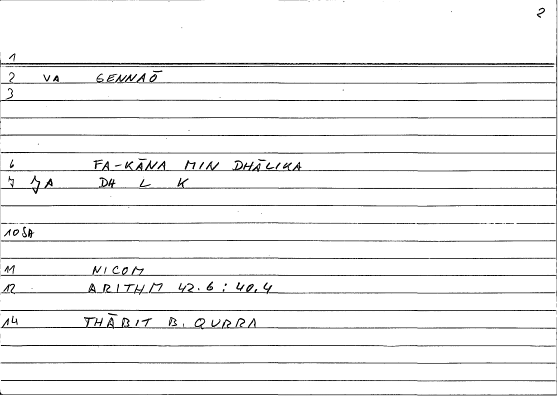 2
1
2 VA GENNAŌ
3
6 FA-KĀNA MIN DHĀLIKA
7 JA DH L K
10 SA
11 NICOM
12 ARITHM 42.6 : 40.4
14 THĀBIT B. QURRA